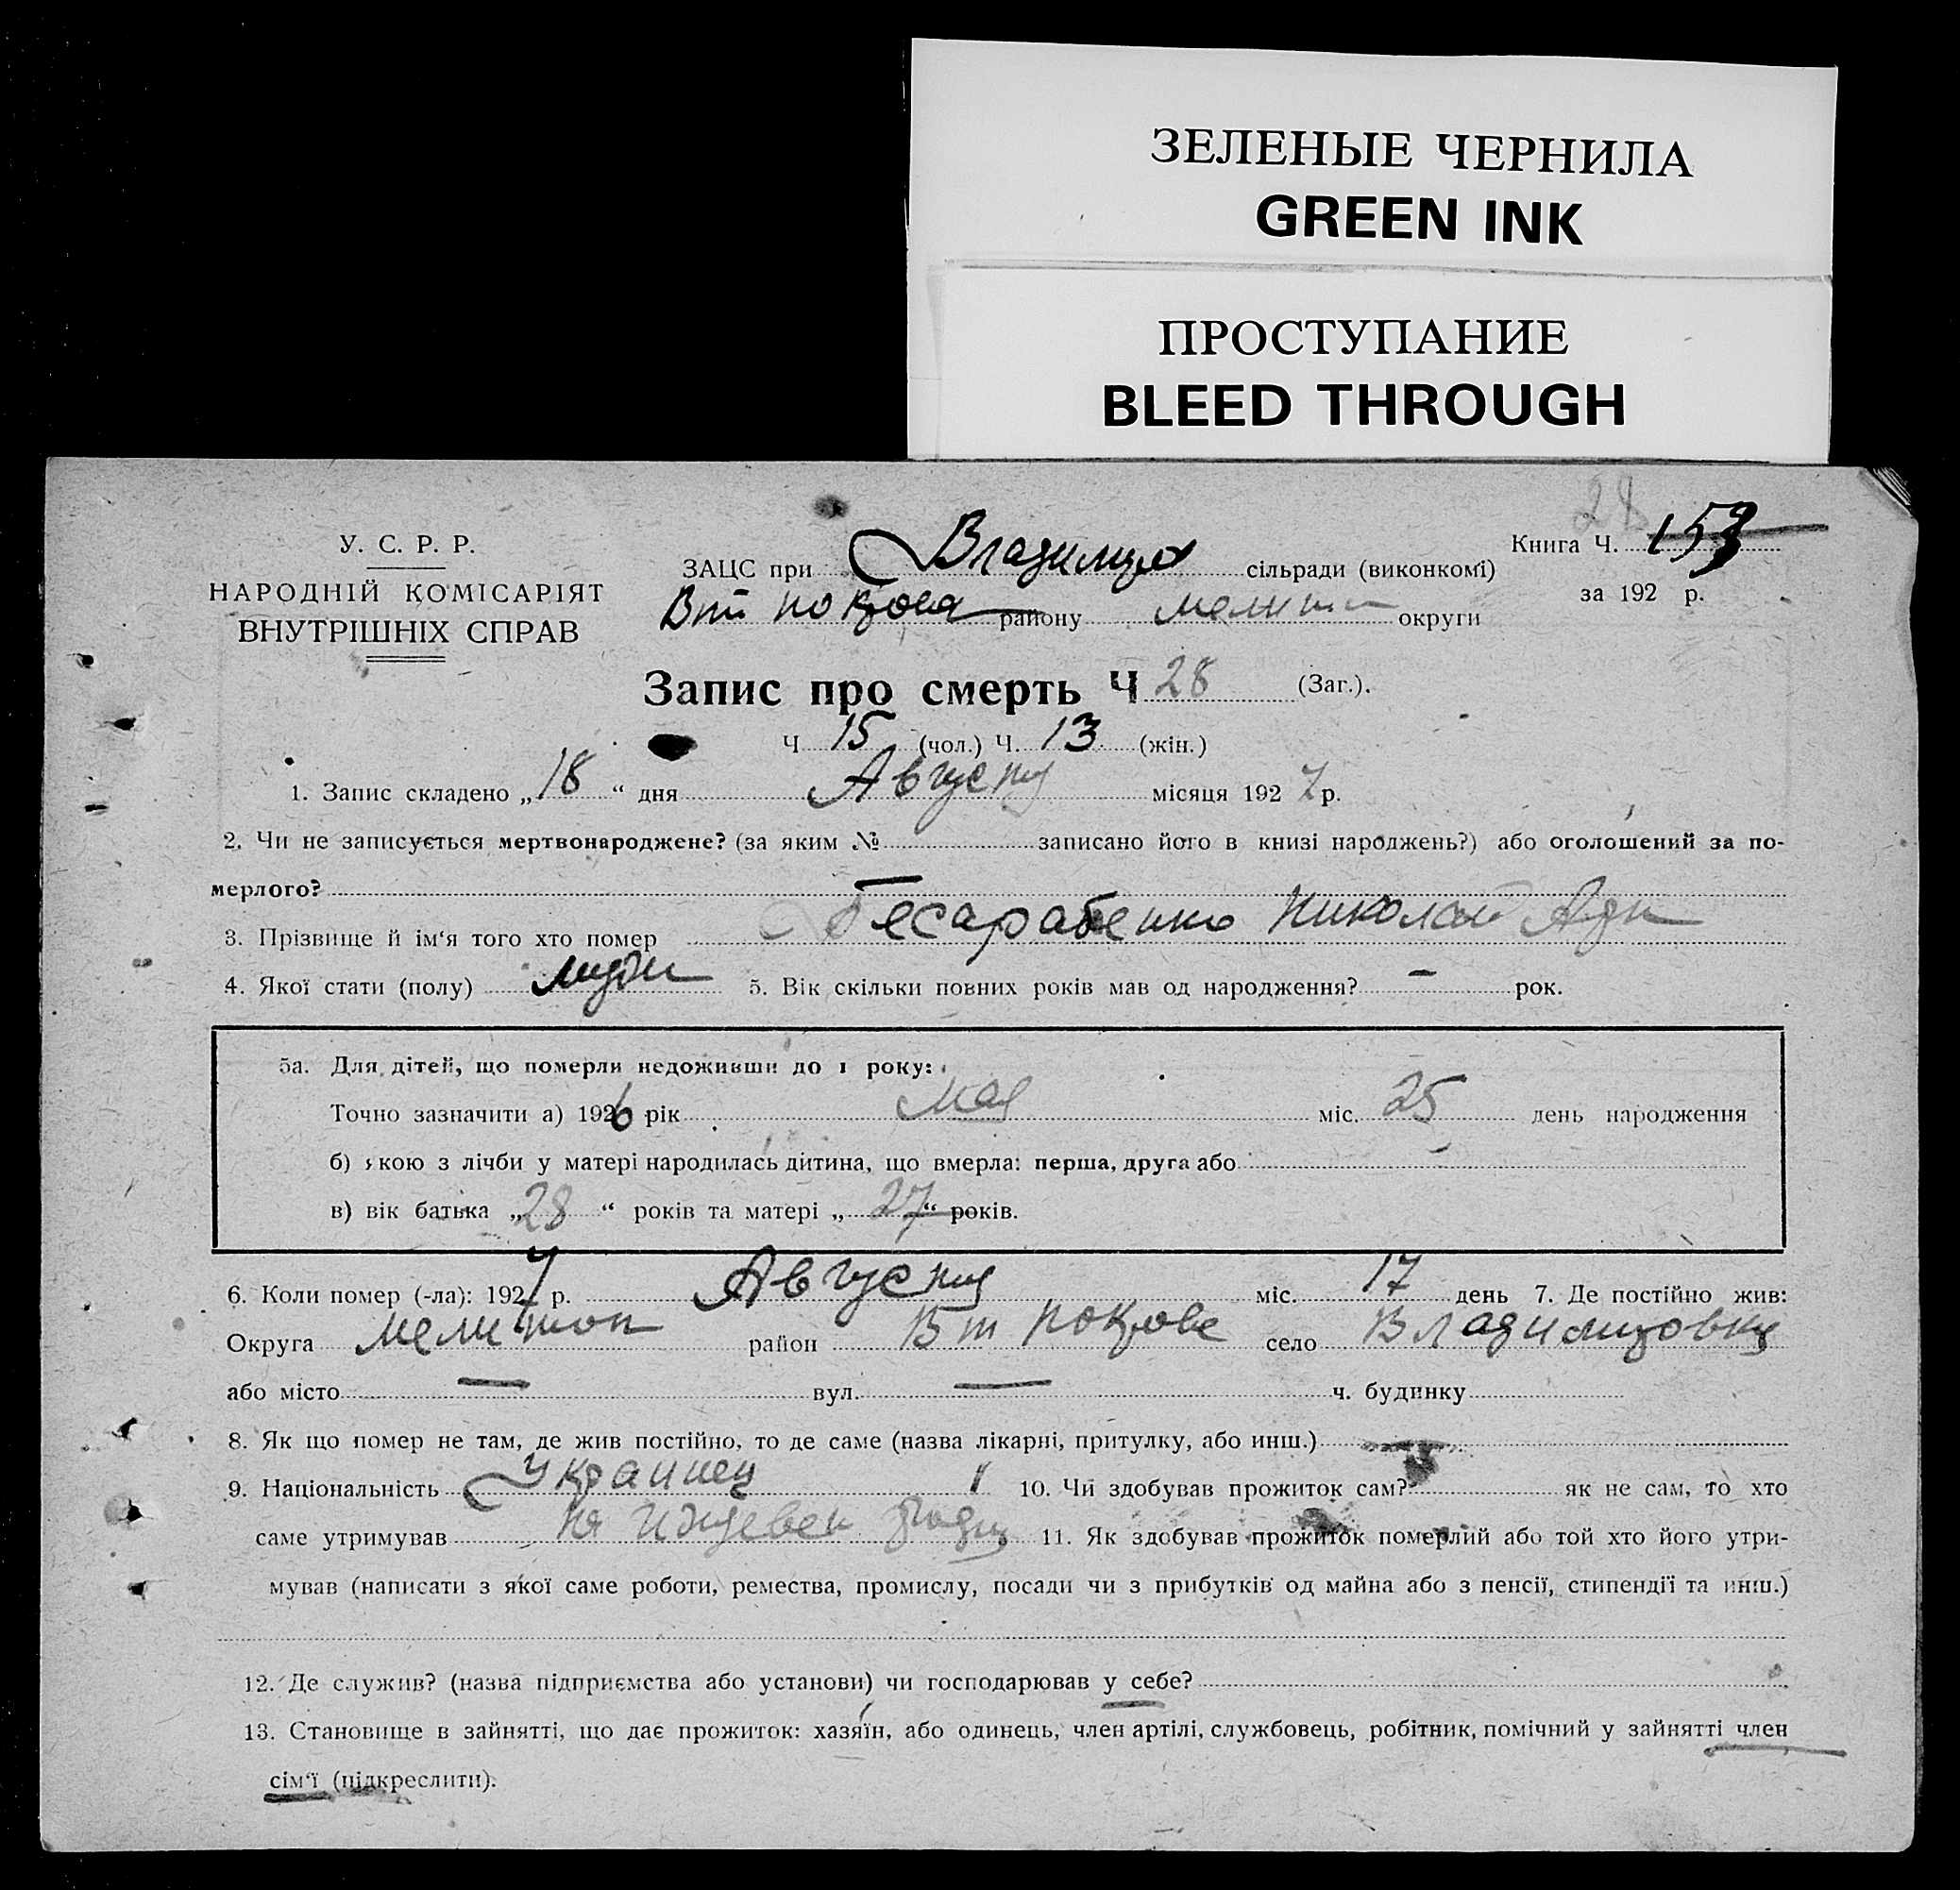 ЗЕЛЕНЫЕ ЧЕРНИЛА
GREEN INK
ПРОСТУПАНИЕ
BLEED THROUGH
28
У. С. Р. Р.
НАРОДНІЙ КОМІСАРІЯТ
ВНУТРІШНІХ СПРАВ
Книга Ч. 153
за 192 р.
ЗАЦС при Владимир сільради (виконкомі)
Вт покров району Мелит округи
Запис про смерть Ч 28 (Заг.).
Ч 15 (чол.) Ч. 13 (жін.)
1. Запис складено „18“ дня Август місяця 1927 р.
2. Чи не записується мертвонароджене? (за яким № записано його в книзі народжень?) або оголошений за по-
мерлого?
3. Прізвище й ім‘я того хто помер Бесарабенко Николай
4. Якої стати (полу) 5. Вік скільки повних років мав од народження? – рок.
5а. Для дітей, що померли недоживши до 1 року:
Точно зазначити а) 1926 рік мая міс. 25 день народження
б) якою з лічби у матері народилась дитина, що вмерла: перша, друга або –
в) вік батька „28“ років та матері „27“ років.
6. Коли помер (-ла): 1927 р. Август міс. 17 день 7. Де постійно жив:
Округа Мелитоп район Вт покров село Владимировка
або місто — вул. — ч. будинку
8. Як що помер не там, де жив постійно, то де саме (назва лікарні, притулку, або инш.)
9. Національність Украинец 10. Чи здобував прожиток сам? як не сам, то хто
саме утримував на иждевен 11. Як здобував прожиток померлий або той хто його утри-
мував (написати з якої саме роботи, ремества, промислу, посади чи з прибутків од майна або з пенсії, стипендії та инш.)
12. Де служив? (назва підприємства або установи) чи господарював у себе?
13. Становище в зайнятті, що дає прожиток: хазяїн, або одинець, член артілі, службовець, робітник, помічний у зайнятті член
сім‘ї (підкреслити).